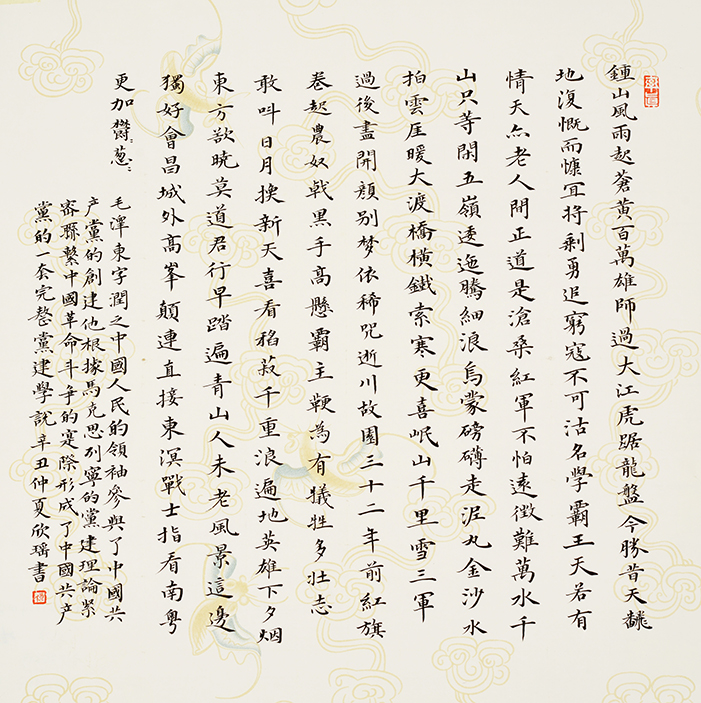 鍾山風雨起蒼黃百萬雄師過大江虎踞龍盤今勝昔天翻
地復慨而慷宜將剩勇追窮寇不可沽名學霸王天若有
情天亦老人間正道是滄桑紅軍不怕遠徵難萬水千
山只等閑五嶺逶迤騰細浪烏蒙磅礴走泥丸金沙水
拍雲崖暖大渡橋橫鐵索寒更喜岷山千里雪三軍
過後盡開顔別梦依稀咒逝川故園三十二年前紅旗
卷起農奴戟黒手高懸霸主鞭為有犧牲多壯志
敢叫日月換新天喜看稻菽千重浪遍地英雄下夕烟
東方欲曉莫道君行早踏遍青山人未老風景這邊
獨好會昌城外高峯顛連直接東溟戰士指看南粵
更加欝葱〻
毛澤東字潤之中國人民的領袖參與了中國共
产黨的創建他根據馬克思列寧的黨建理論紧
密聯繫中國革命斗争的寔際形成了中國共产
黨的一套完整黨建學說辛丑仲夏欣瑶書